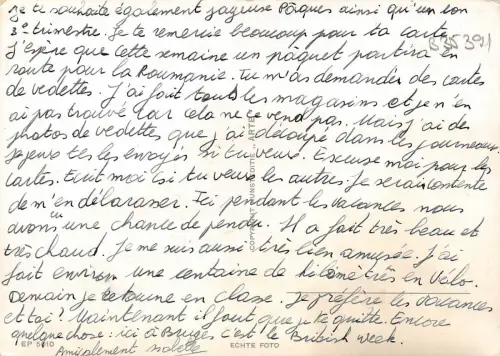 Je te souhaite également joyeuse Pâques ainsi qu'un bon
3e trimestre. Je te remercie beaucoup pour ta carte.
J'espère que cette semaine un paquet partira en
route pour la Roumanie. Tu m'as demander des cartes
de vedettes. J'ai fait tous les magasins et je n'en
ai pas trouvé car cela ne se vend pas. Mais j'ai des
photos de vedettes que j'ai découpé dans les journeaux
je peux te les envoyés si tu veux. Excuse moi pour les
cartes. Ecrit moi si tu veux les autres. Je serais contente
de m'en débarasser. Ici pendant les vacances nous
avons eu une chance de pendu. Il a fait très beau et
très chaud. Je me suis aussi très bien amusée. J'ai
fait environ une centaine de kilomètres en vélo.
Demain je retourne en classe. Je préfère les vacances
et toi? Maintenant il faut que je te quitte. Encore
quelque chose: ici à Bruges c'est le British week.
Amicalement
B 35391
COPYRIGHT
EP 5110
ECHTE FOTO